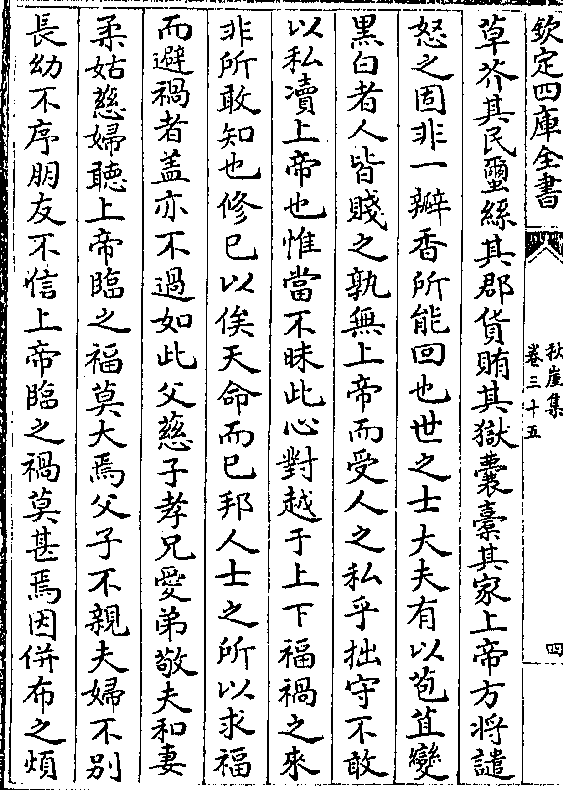 欽定四庫全書
秋崖集
卷三十五
四
草芥其民蠒絲其郡貨賄其獄囊橐其家上帝方將譴
怒之固非一瓣香所能回也世之士大夫有以苞苴變
黑白者人皆賤之孰無上帝而受人之私乎拙守不敢
以私凟上帝也惟當不昧此心對越于上下福禍之來
非所敢知也修已以俟天命而已邦人士之所以求福
而避禍者盖亦不過如此父慈子孝兄愛弟敬夫和妻
柔姑慈婦聽上帝臨之福莫大焉父子不親夫婦不别
長幼不序朋友不信上帝臨之禍莫甚焉因併布之煩